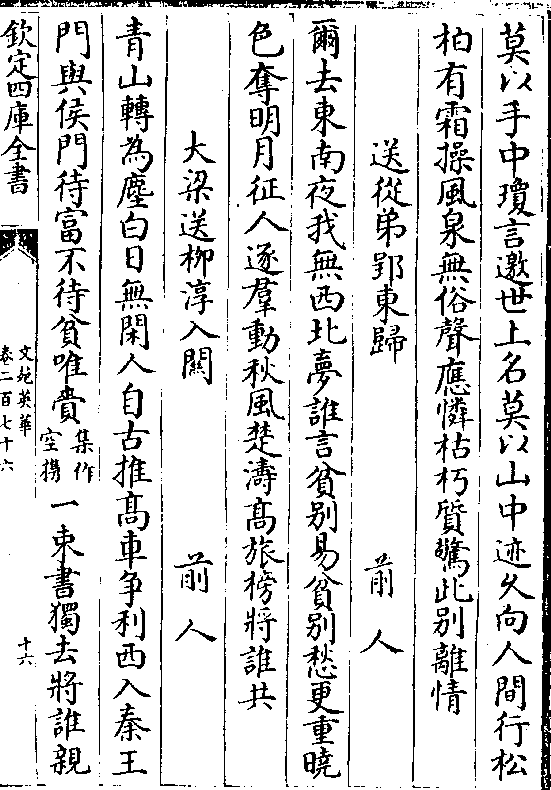 莫以手中瓊言邀世上名莫以山中迹久向人間行松
柏有霜操風泉無俗聲應憐枯朽質驚此別離情
送從弟郢東歸 前人
爾去東南夜我無西北夢誰言貧别易貧别愁更重曉
色奪明月征人逐羣動秋風楚濤髙旅榜將誰共
大梁送栁淳入關 前人
青山轉為塵白日無閑人自古推髙車争利西入秦王
門與侯門待富不待貧唯賷集作空㩗一束書獨去將誰親
欽定四庫全書
文苑英華
卷二百七十六
十六